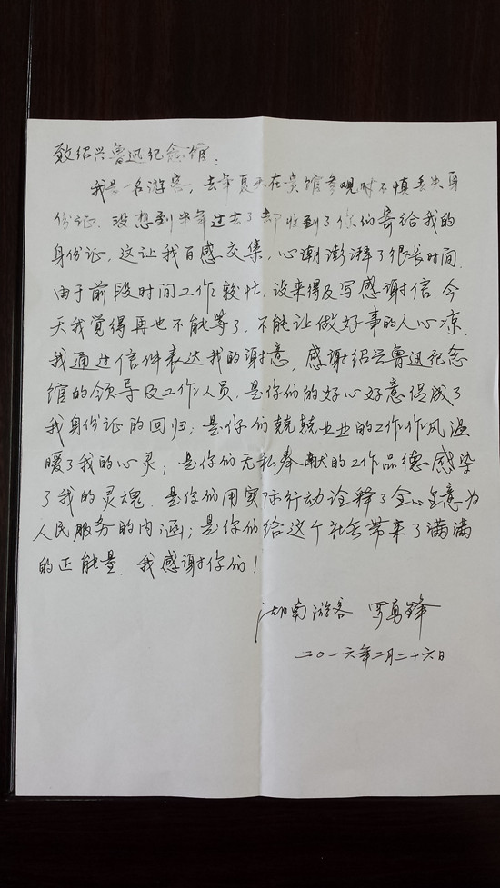 致绍兴鲁迅纪念馆：
我是一名游客，去年夏天在贵馆参观时不慎丢失身
份证，没想到半年过去了却收到了你们寄给我的
身份证，这让我百感交集，心潮澎湃了很长时间。
由于前段时间工作较忙，没来得及写感谢信，今
天我觉得再也不能等了，不能让做好事的人心凉，
我通过信件表达我的谢意，感谢绍兴鲁迅纪念
馆的领导及工作人员，是你们的好心好意促成了
我身份证的回归；是你们兢兢业业的工作作风温
暖了我的心灵；是你们无私奉献的工作品德感染
了我的灵魂，是你们用实际行动诠释了全心全意为
人民服务的内涵；是你们给这个社会带来了满满
的正能量，我感谢你们！
湖南游客 罗勇锋
二〇一六年二月二十六日